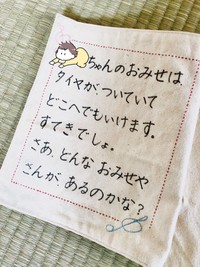 ちゃんのおみせは、
タイヤが、ついていて
どこへでもいけます。
すてきでしょ。
さあ、とんな おみせや
さんが、あるのかな？